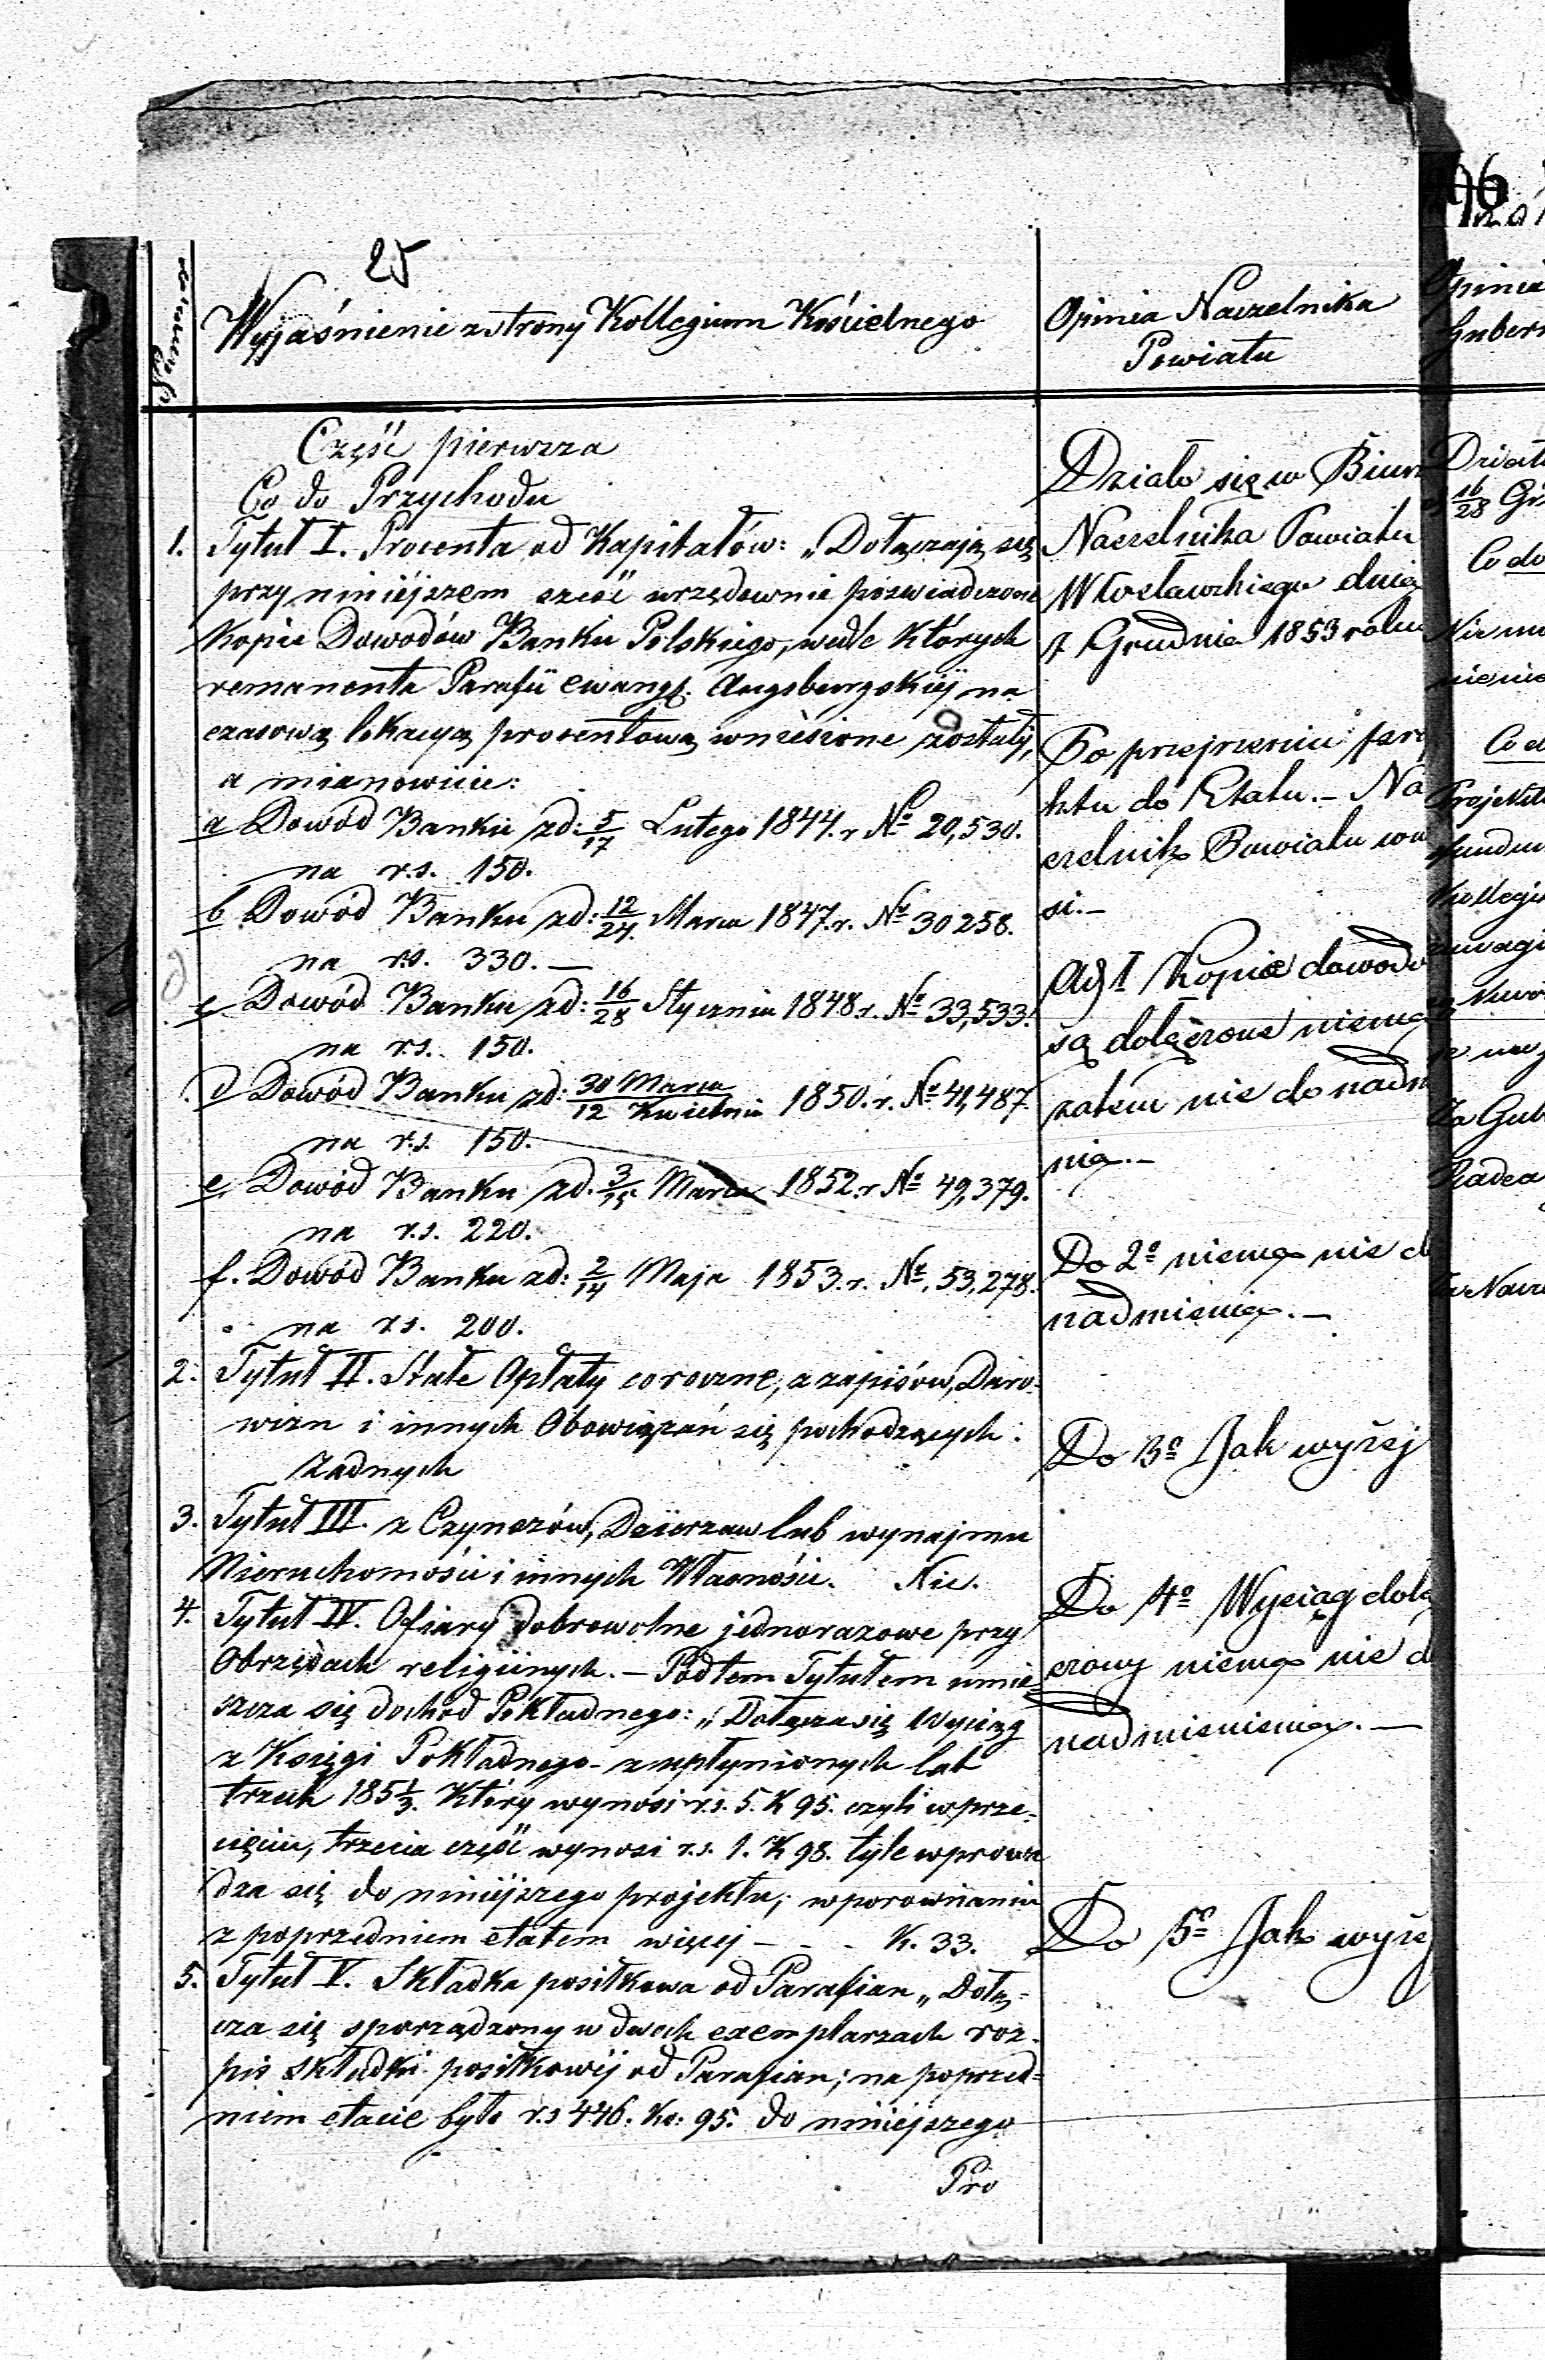 25
Wyjaśnienie z strony Kollegium Kościelnego
Część pierwsza
Co do Przychodu
1. Tytuł I. Procenta od Kapitałów: „Dołączają się
przy niniéjszem sześć urzędownie poświadczone
Kopie Dowodów Banku Polskiego, wedle których
remanenta Parafii ewangl. Augsburgskiéj na
czasową lokacyą procentową wniesione zostały,
a mianowicie:
a Dowód Banku zd: 5/17 Lutego 1844. r № 20,530.
na r.s. 150.
b Dowód Banku zd: 12/24 Marca 1847. r. № 30258.
na r.s. 330. —
c Dowód Banku zd: 16/28 Stycznia 1848. r. № 33,533.
na r.s. 150.
d Dowód Banku zd: 30 Marca/12 Kwietnia 1850. r. № 41,487.
na r.s. 150.
e Dowód Banku zd. 3/15 Marca 1852. r № 49,379.
na r.s. 220.
f. Dowód Banku zd: 2/14 Maja 1853. r. № 53,278.
na r.s. 200.
2. Tytuł II. Stałe Opłaty coroczne, z zapisów, Daro-
wizn i innych Obowiązań się pochodzących:
żadnych
3. Tytuł III. z Czynszów, Dzierzaw lub wynajmu
Nieruchomości i innych Własności. Nic.
4. Tytuł IV. Ofiary dobrowolne jednorazowe przy
Obrzędach religiinych. — Pod tem Tytułem umie-
szcza się dochód Pokładnego: „Dołącza się Wyciąg
z Księgi Pokładnego z upłynionych lat
trzech 185 1/3. Który wynosi r.s. 5. K 95. czyli w prze-
cięciu, trzecia część wynosi r.s. 1. K 98. tyle wprowa
dza się do niniéjszego projektu; w porownaniu
z poprzedniem etatem więcéj - - - K. 33.
5. Tytuł V. Składka posiłkowa od Parafian „Dołą-
cza się sporządzony w dwóch exemplarzach roz-
pis składki posiłkowéj od Parafian; na poprzed-
niem etacie było r.s 446. Ko: 95. do niniéjszego
Pro
Opinia Naczelnika
Powiatu
Działo się w Biurz
Naczelnika Powiatu
Włocławskiego dnia
7 Grudnia 1853 roku
Po przejrzeniu proje
ktu do Etatu. — Na
czelnik Powiatu wno
si. —
Ad I Kopie dowodów
są dołączone niema
zatem nic do nadm
nia. —
Do 2º niema nic d
nadmienia. —
Do 3º Jak wyżej
Do 4º Wyciąg dołą
czony niema nic d
nadmienienia. —
Do 5º Jak wyżej
96
Opinia
Gubern
Działo
16/28 Gr
Co do
Nie ma
nienia
Co d
Projekt
Kollegiu
uwagi
Za Gub
Radca